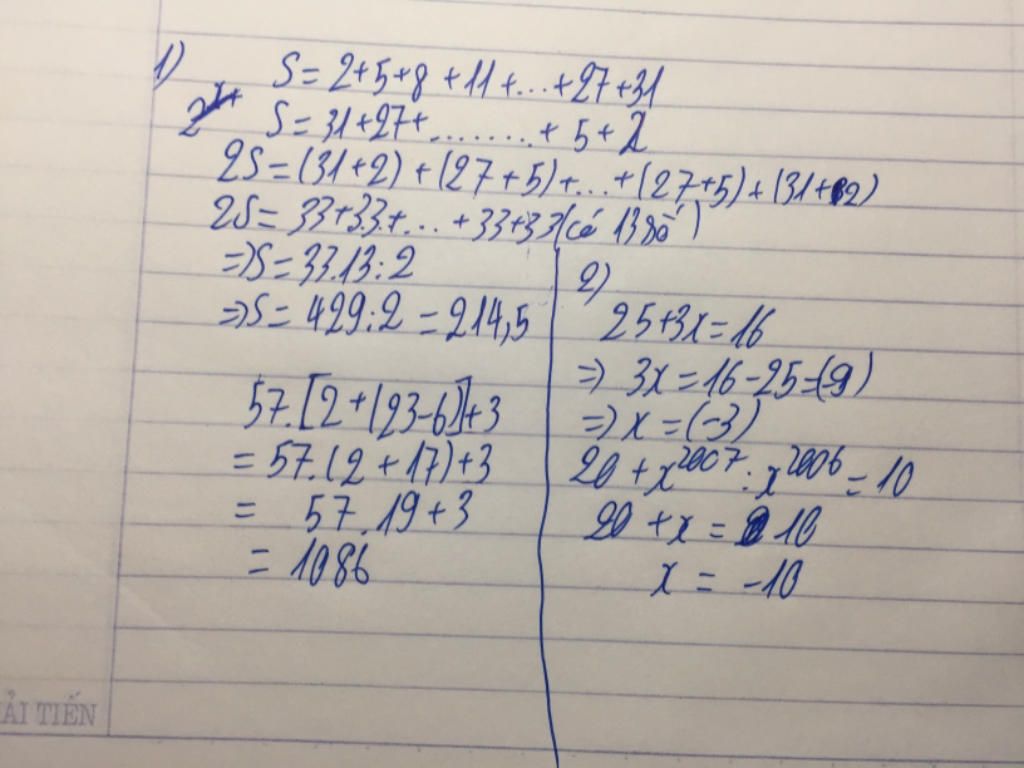 1)
S = 2+5+8+11+...+27+31
S = 31+27+........+5+2
2S = (31+2)+(27+5)+...+(27+5)+(31+2)
2S = 33+33+...+33+33 (có 13 số)
=> S = 33.13:2
=> S = 429:2 = 214,5
57.[2+(23-6)]+3
= 57.(2+17)+3
= 57.19+3
= 1086
2)
25+3x=16
=> 3x=16-25=(-9)
=> x=(-3)
20+x²⁰⁰⁷:x²⁰⁰⁶=10
20+x=10
x = -10
ẢI TIẾN